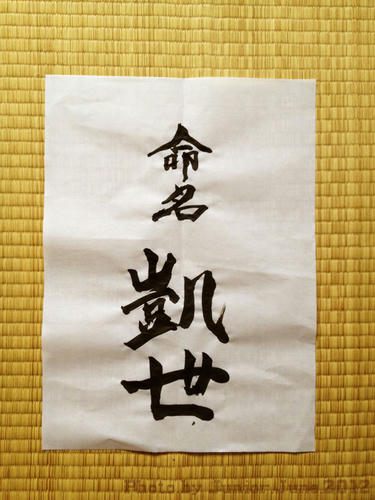 命名
凱世
Photo by Junior June 2012